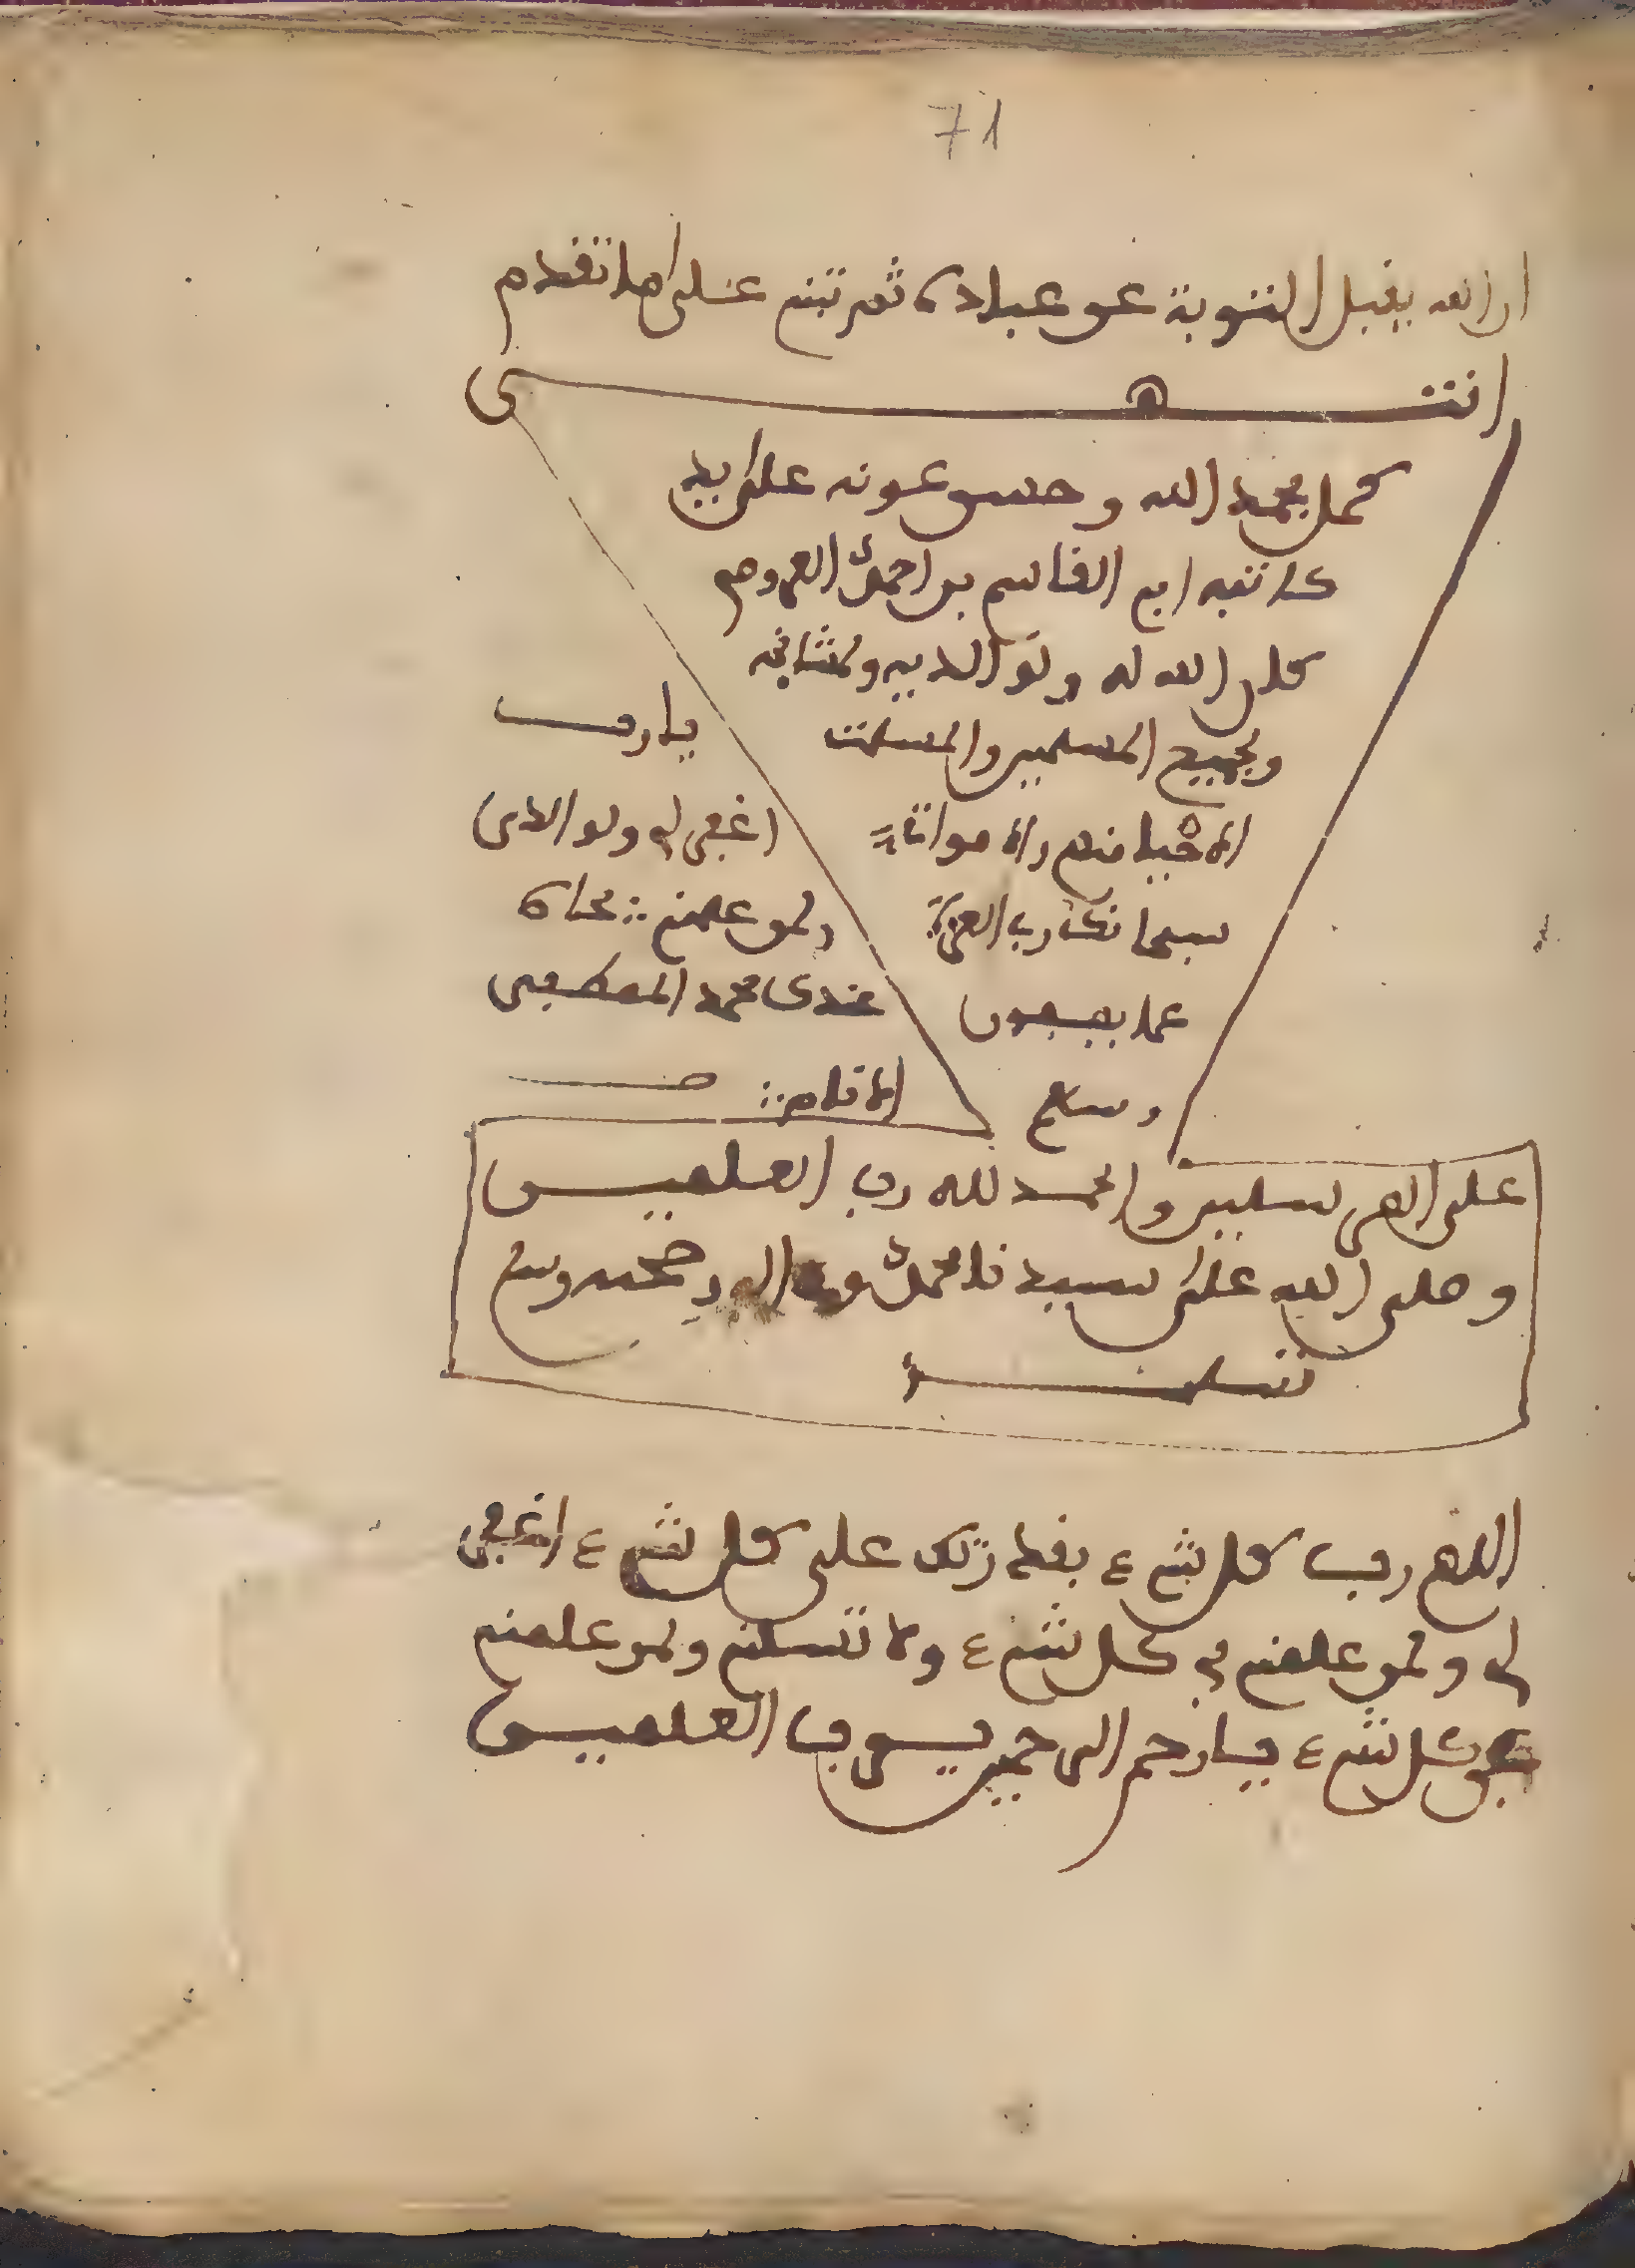 71
ان الله يقبل التوبة عن عباده ثم تبنى على ما تقدم
انتهى
كمل بحمد الله وحسن عونه على يد
كاتبه ابي القاسم بن احمد
كان الله له ولوالديه ولمشائخه
ولجميع المسلمين والمسلمت
الاحيا منهم والاموات
سبحانك رب العزة
عما يصفون
وسلم
على المرسلين والحمد لله رب العلمين
وصلى الله على سيدنا محمد وعلى اله وصحبه وسلم
تسليما
يا رب
اغفر لي ولوالدي
ولمن علمني
عندي محمد المصطفى
الانام
اللهم رب كل شيء بقدرتك على كل شيء اغفر
لي ولمن علمني في كل شيء ولا تسلني ولمن علمني
عن كل شيء يا ارحم الرحمين يرب العلمين